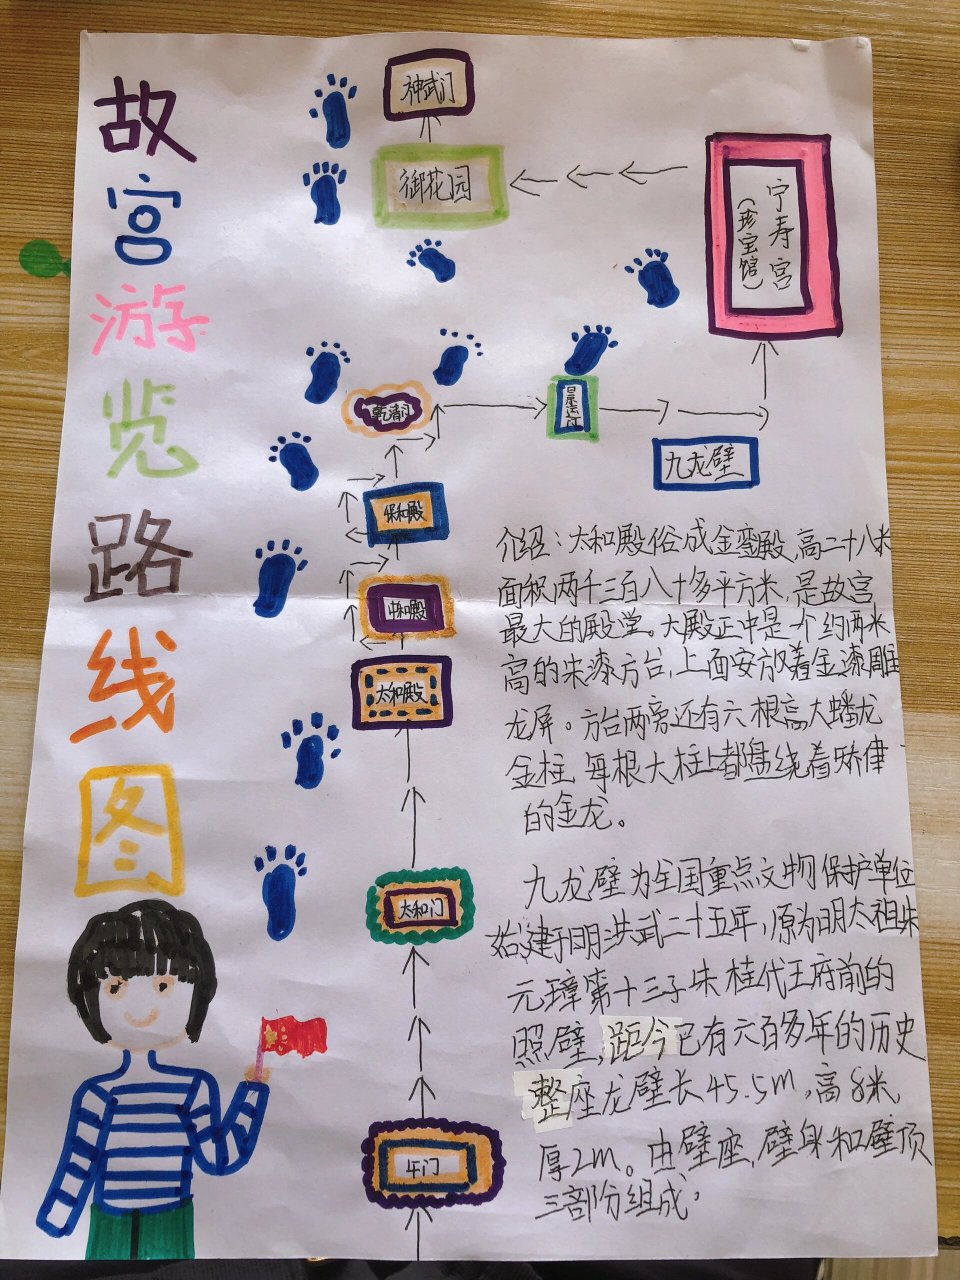 故宫游览路线图
神武门
御花园
宁寿宫
(珍宝馆)
乾清门
景运门
九龙壁
保和殿
中和殿
太和殿
太和门
午门
介绍:太和殿俗成金銮殿,高二十八米
面积两千三百八十多平方米,是故宫
最大的殿堂。大殿正中是个约两米
高的朱漆方台,上面安放着金漆雕
龙屏。方台两旁还有六根高大蟠龙
金柱,每根大柱上都盘绕着矫健
的金龙。
九龙壁为全国重点文物保护单位
始建于明洪武二十五年,原为明太祖朱
元璋第十三子朱桂代王府前的
照壁,距今已有六百多年的历史
整座龙壁长45.5m,高8米,
厚2m。由壁座,壁身和壁顶
三部分组成。